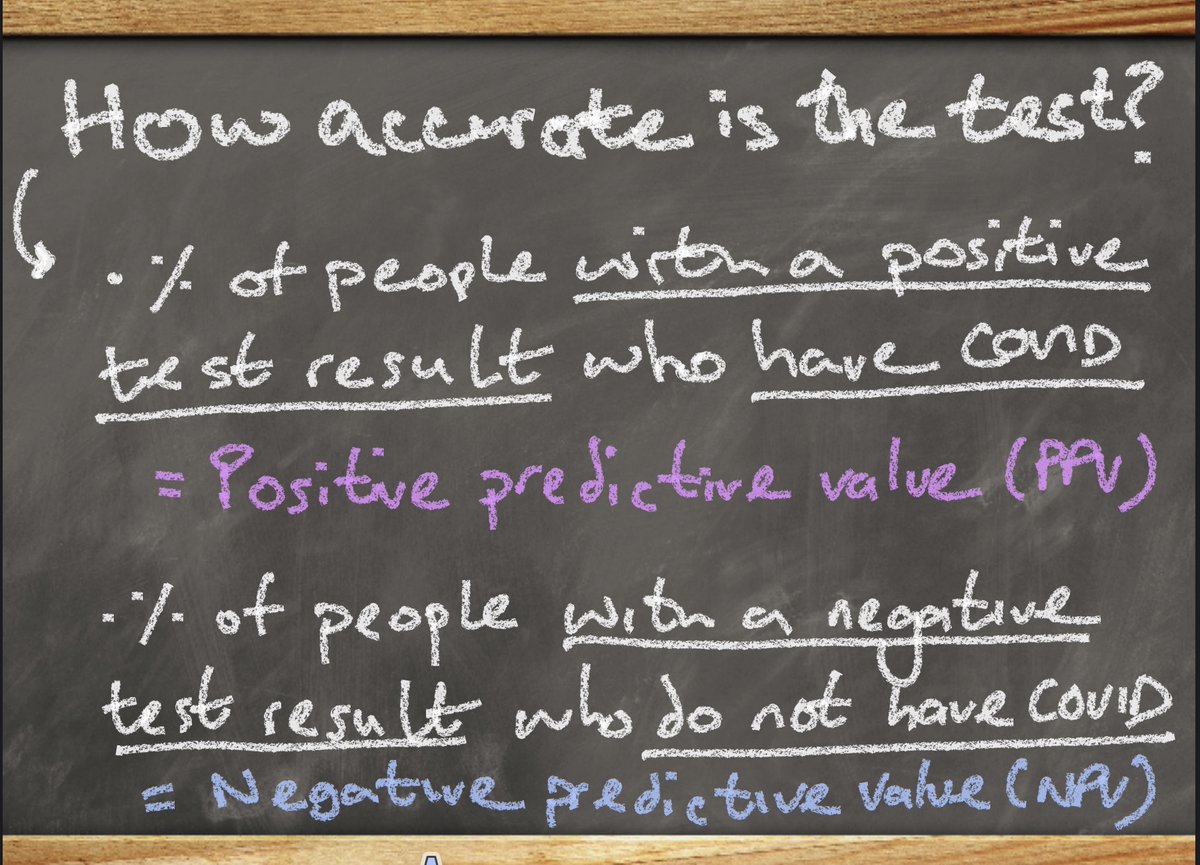 How accurate is the test?
• % of people with a positive
test result who have COVID
= Positive predictive value (PPV)
• % of people with a negative
test result who do not have COVID
= Negative predictive value (NPV)